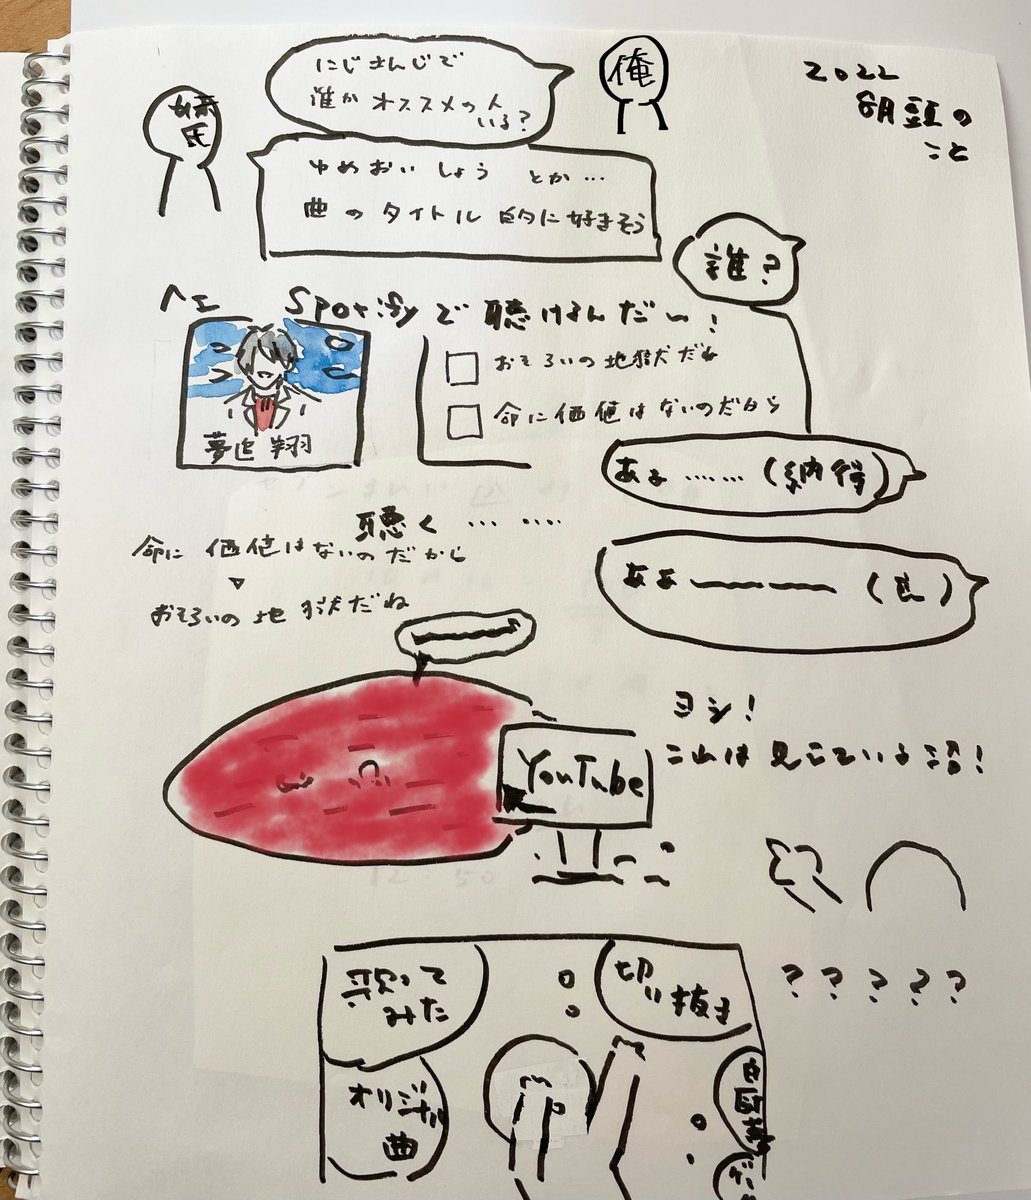 2022
8月頭の
こと
俺
姉氏
にじさんじで
誰かオススメの人
いる?
ゆめおいしょうとか…
曲のタイトル的に好きそう
誰?
へェ Spotifyで聴けるんだぃ!
夢追翔
おそろいの地獄だね
命に価値はないのだから
ああ……(納得)
聴く……
命に価値はないのだから
▽
おそろいの地獄だね
ああ———(良)
ヨシ!
これは見えている沼!
YouTube
?????
歌って
みた
切り抜き
オリジナル
曲